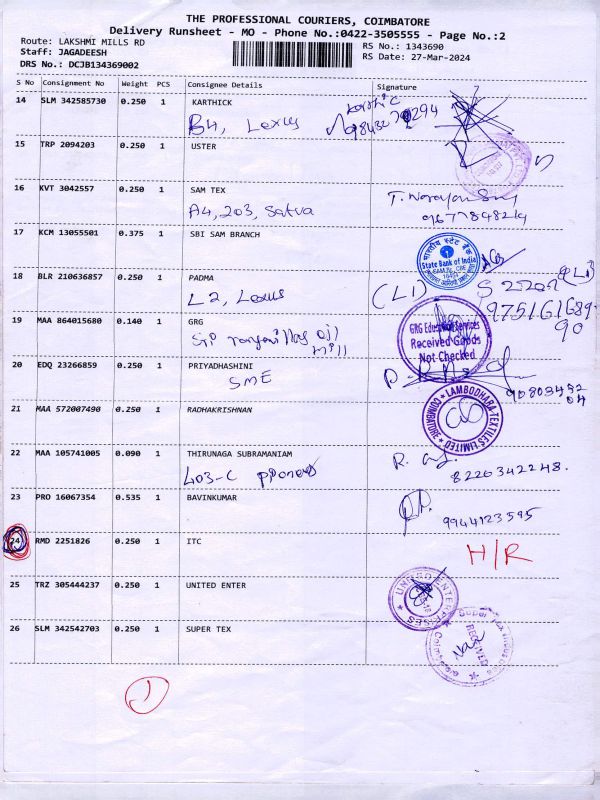 THE PROFESSIONAL COURIERS, COIMBATORE
Delivery Runsheet - MO - Phone No.:0422-3505555 - Page No.:2
Route: LAKSHMI MILLS RD
RS No.: 1343690
Staff: JAGADEESH
RS Date: 27-Mar-2024
DRS No.: DCJB134369002
S No Consignment No Weight PCS Consignee Details Signature
14 SLM 342585730 0.250 1 KARTHICK
B4, Lexus
15 TRP 2094203 0.250 1 USTER
16 KVT 3042557 0.250 1 SAM TEX
A4, 203, Satva
17 KCM 13055501 0.375 1 SBI SAM BRANCH
भारतीय स्टेट बैंक
State Bank of India
18 BLR 210636857 0.250 1 PADMA
L2, Lexus
(L1)
975161689
90
19 MAA 864015680 0.140 1 GRG
GRG Educational Services
Received Goods
Not Checked
20 EDQ 23266859 0.250 1 PRIYADHASHINI
SME
21 MAA 572007490 0.250 1 RADHAKRISHNAN
LAMBODHARA TEXTILES LIMITED
COIMBATORE
22 MAA 105741005 0.090 1 THIRUNAGA SUBRAMANIAM
403-C
8220342248.
23 PRO 16067354 0.535 1 BAVINKUMAR
9944123595
24 RMD 2251826 0.250 1 ITC
H/R
25 TRZ 305444237 0.250 1 UNITED ENTER
UNITED ENTERPRISES
26 SLM 342542703 0.250 1 SUPER TEX
RECEIVED
1